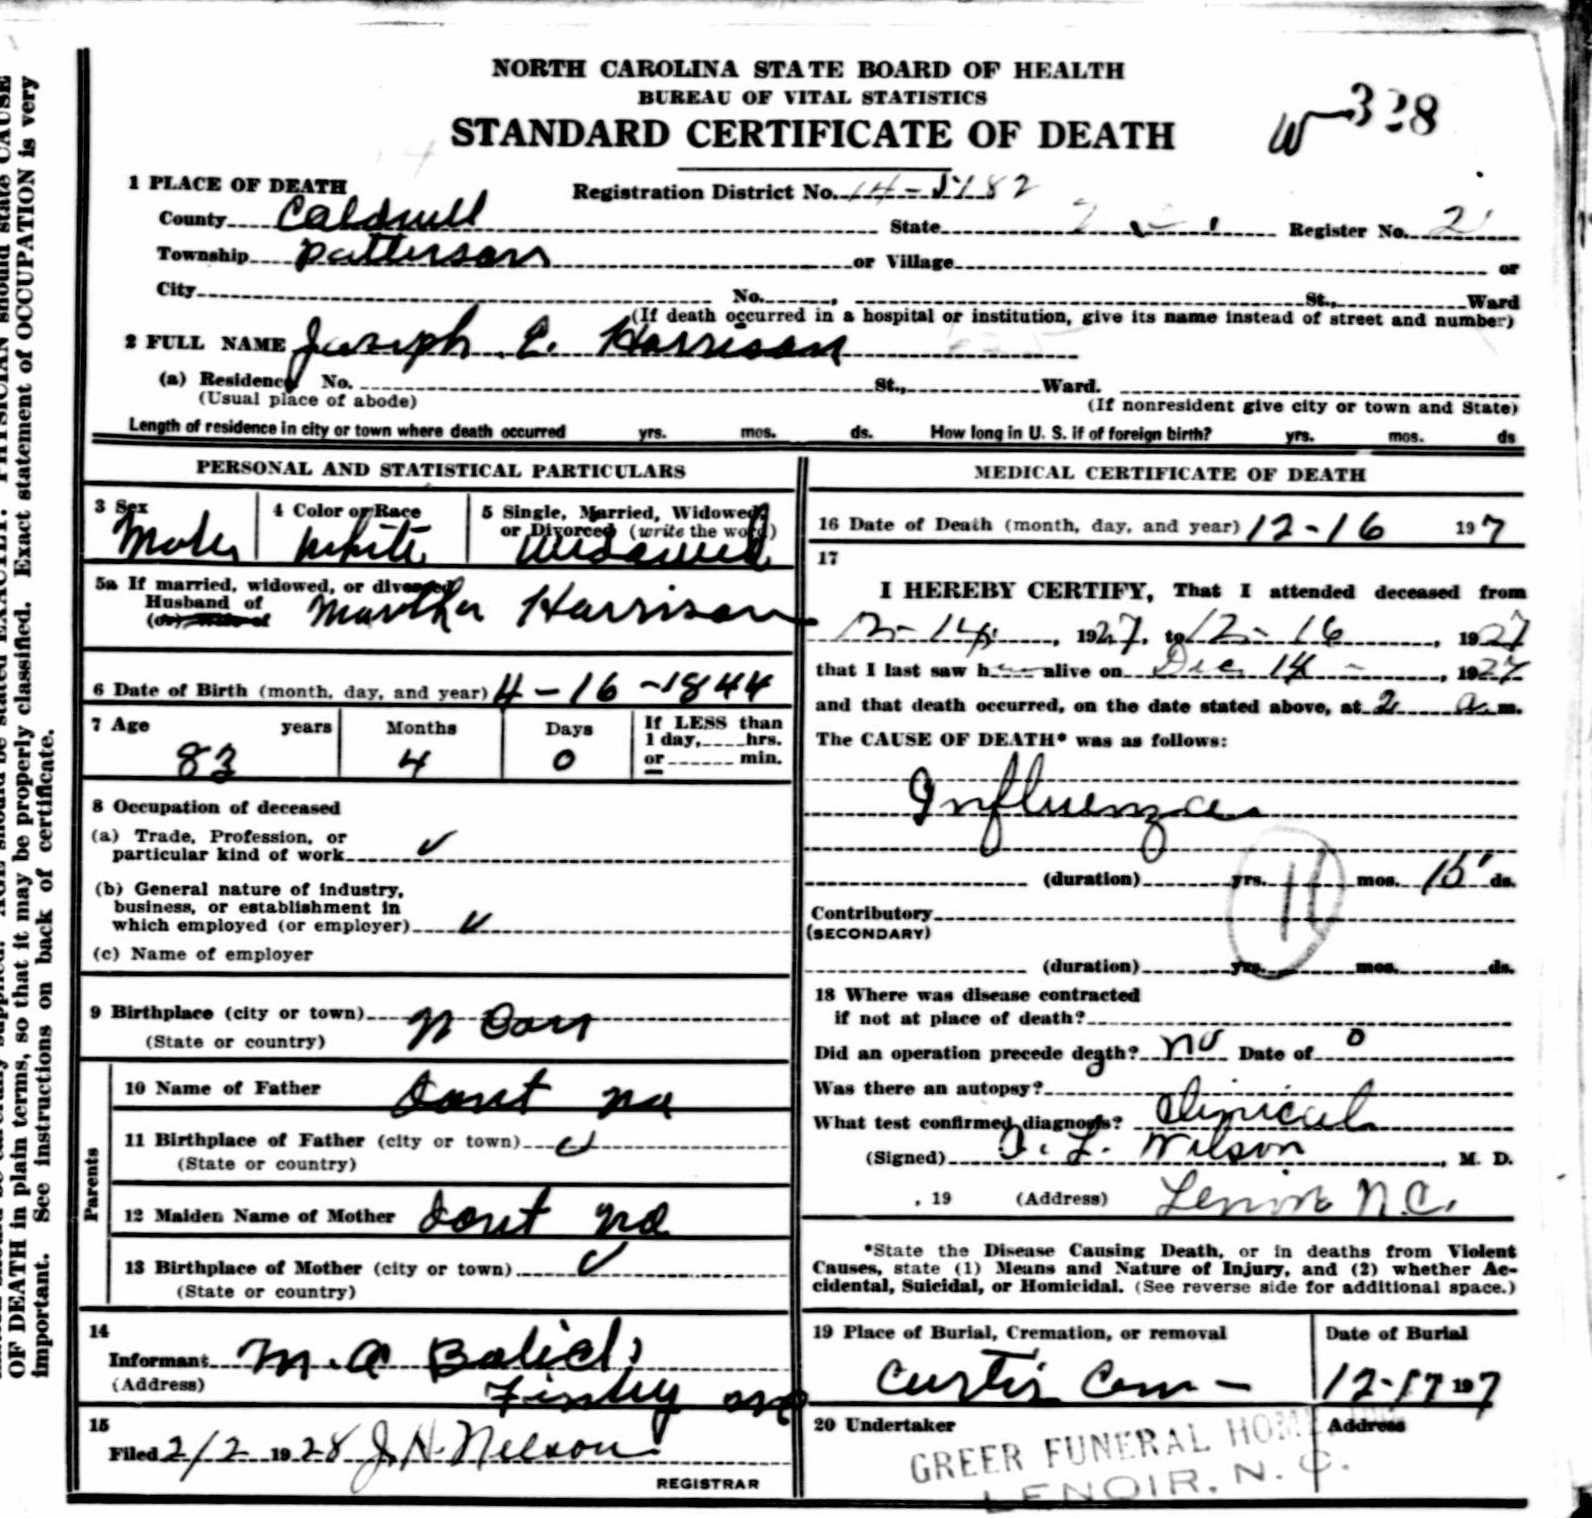 OF DEATH in plain terms, so that it may be properly classified. Exact statement of OCCUPATION is very
important. See instructions on back of certificate.
NORTH CAROLINA STATE BOARD OF HEALTH
BUREAU OF VITAL STATISTICS
STANDARD CERTIFICATE OF DEATH
W 328
1 PLACE OF DEATH
Registration District No. 14-5182
County Caldwell State Register No. 2
Township Patterson or Village or
City No. , St., Ward
(If death occurred in a hospital or institution, give its name instead of street and number)
2 FULL NAME Joseph E. Harrison
(a) Residence No. St., Ward.
(Usual place of abode) (If nonresident give city or town and State)
Length of residence in city or town where death occurred yrs. mos. ds. How long in U. S. if of foreign birth? yrs. mos. ds
PERSONAL AND STATISTICAL PARTICULARS
3 Sex 4 Color or Race 5 Single, Married, Widowed,
or Divorced (write the word)
Male White Widowed
5a If married, widowed, or divorced
Husband of Martha Harrison
(or) wife of
6 Date of Birth (month, day, and year) 4-16-1844
7 Age years Months Days If LESS than
1 day, hrs.
83 4 0 or min.
8 Occupation of deceased
(a) Trade, Profession, or
particular kind of work ✓
(b) General nature of industry,
business, or establishment in
which employed (or employer) ✓
(c) Name of employer
9 Birthplace (city or town) N Car
(State or country)
Parents
10 Name of Father Dont no
11 Birthplace of Father (city or town) ✓
(State or country)
12 Maiden Name of Mother Dont no
13 Birthplace of Mother (city or town) ✓
(State or country)
14
Informant M. A
(Address)
15
Filed 2/2 1928 J. N. Nelson
REGISTRAR
MEDICAL CERTIFICATE OF DEATH
16 Date of Death (month, day, and year) 12-16 197
17
I HEREBY CERTIFY, That I attended deceased from
, 1927, to 12-16, 1927
that I last saw h alive on Dec 14 - , 1927
and that death occurred, on the date stated above, at 2 a m.
The CAUSE OF DEATH* was as follows:
Influenza
(duration) yrs. mos. 15 ds.
11
Contributory
(SECONDARY)
(duration) yrs. mos. ds.
18 Where was disease contracted
if not at place of death?
Did an operation precede death? no Date of 0
Was there an autopsy?
What test confirmed diagnosis? Clinical
(Signed) L. Wilson, M. D.
, 19 (Address) Lenoir N.C.
*State the Disease Causing Death, or in deaths from Violent
Causes, state (1) Means and Nature of Injury, and (2) whether Ac-
cidental, Suicidal, or Homicidal. (See reverse side for additional space.)
19 Place of Burial, Cremation, or removal Date of Burial
Curtis Cem - 12-17 197
20 Undertaker Address
GREER FUNERAL HOME
LENOIR, N. C.